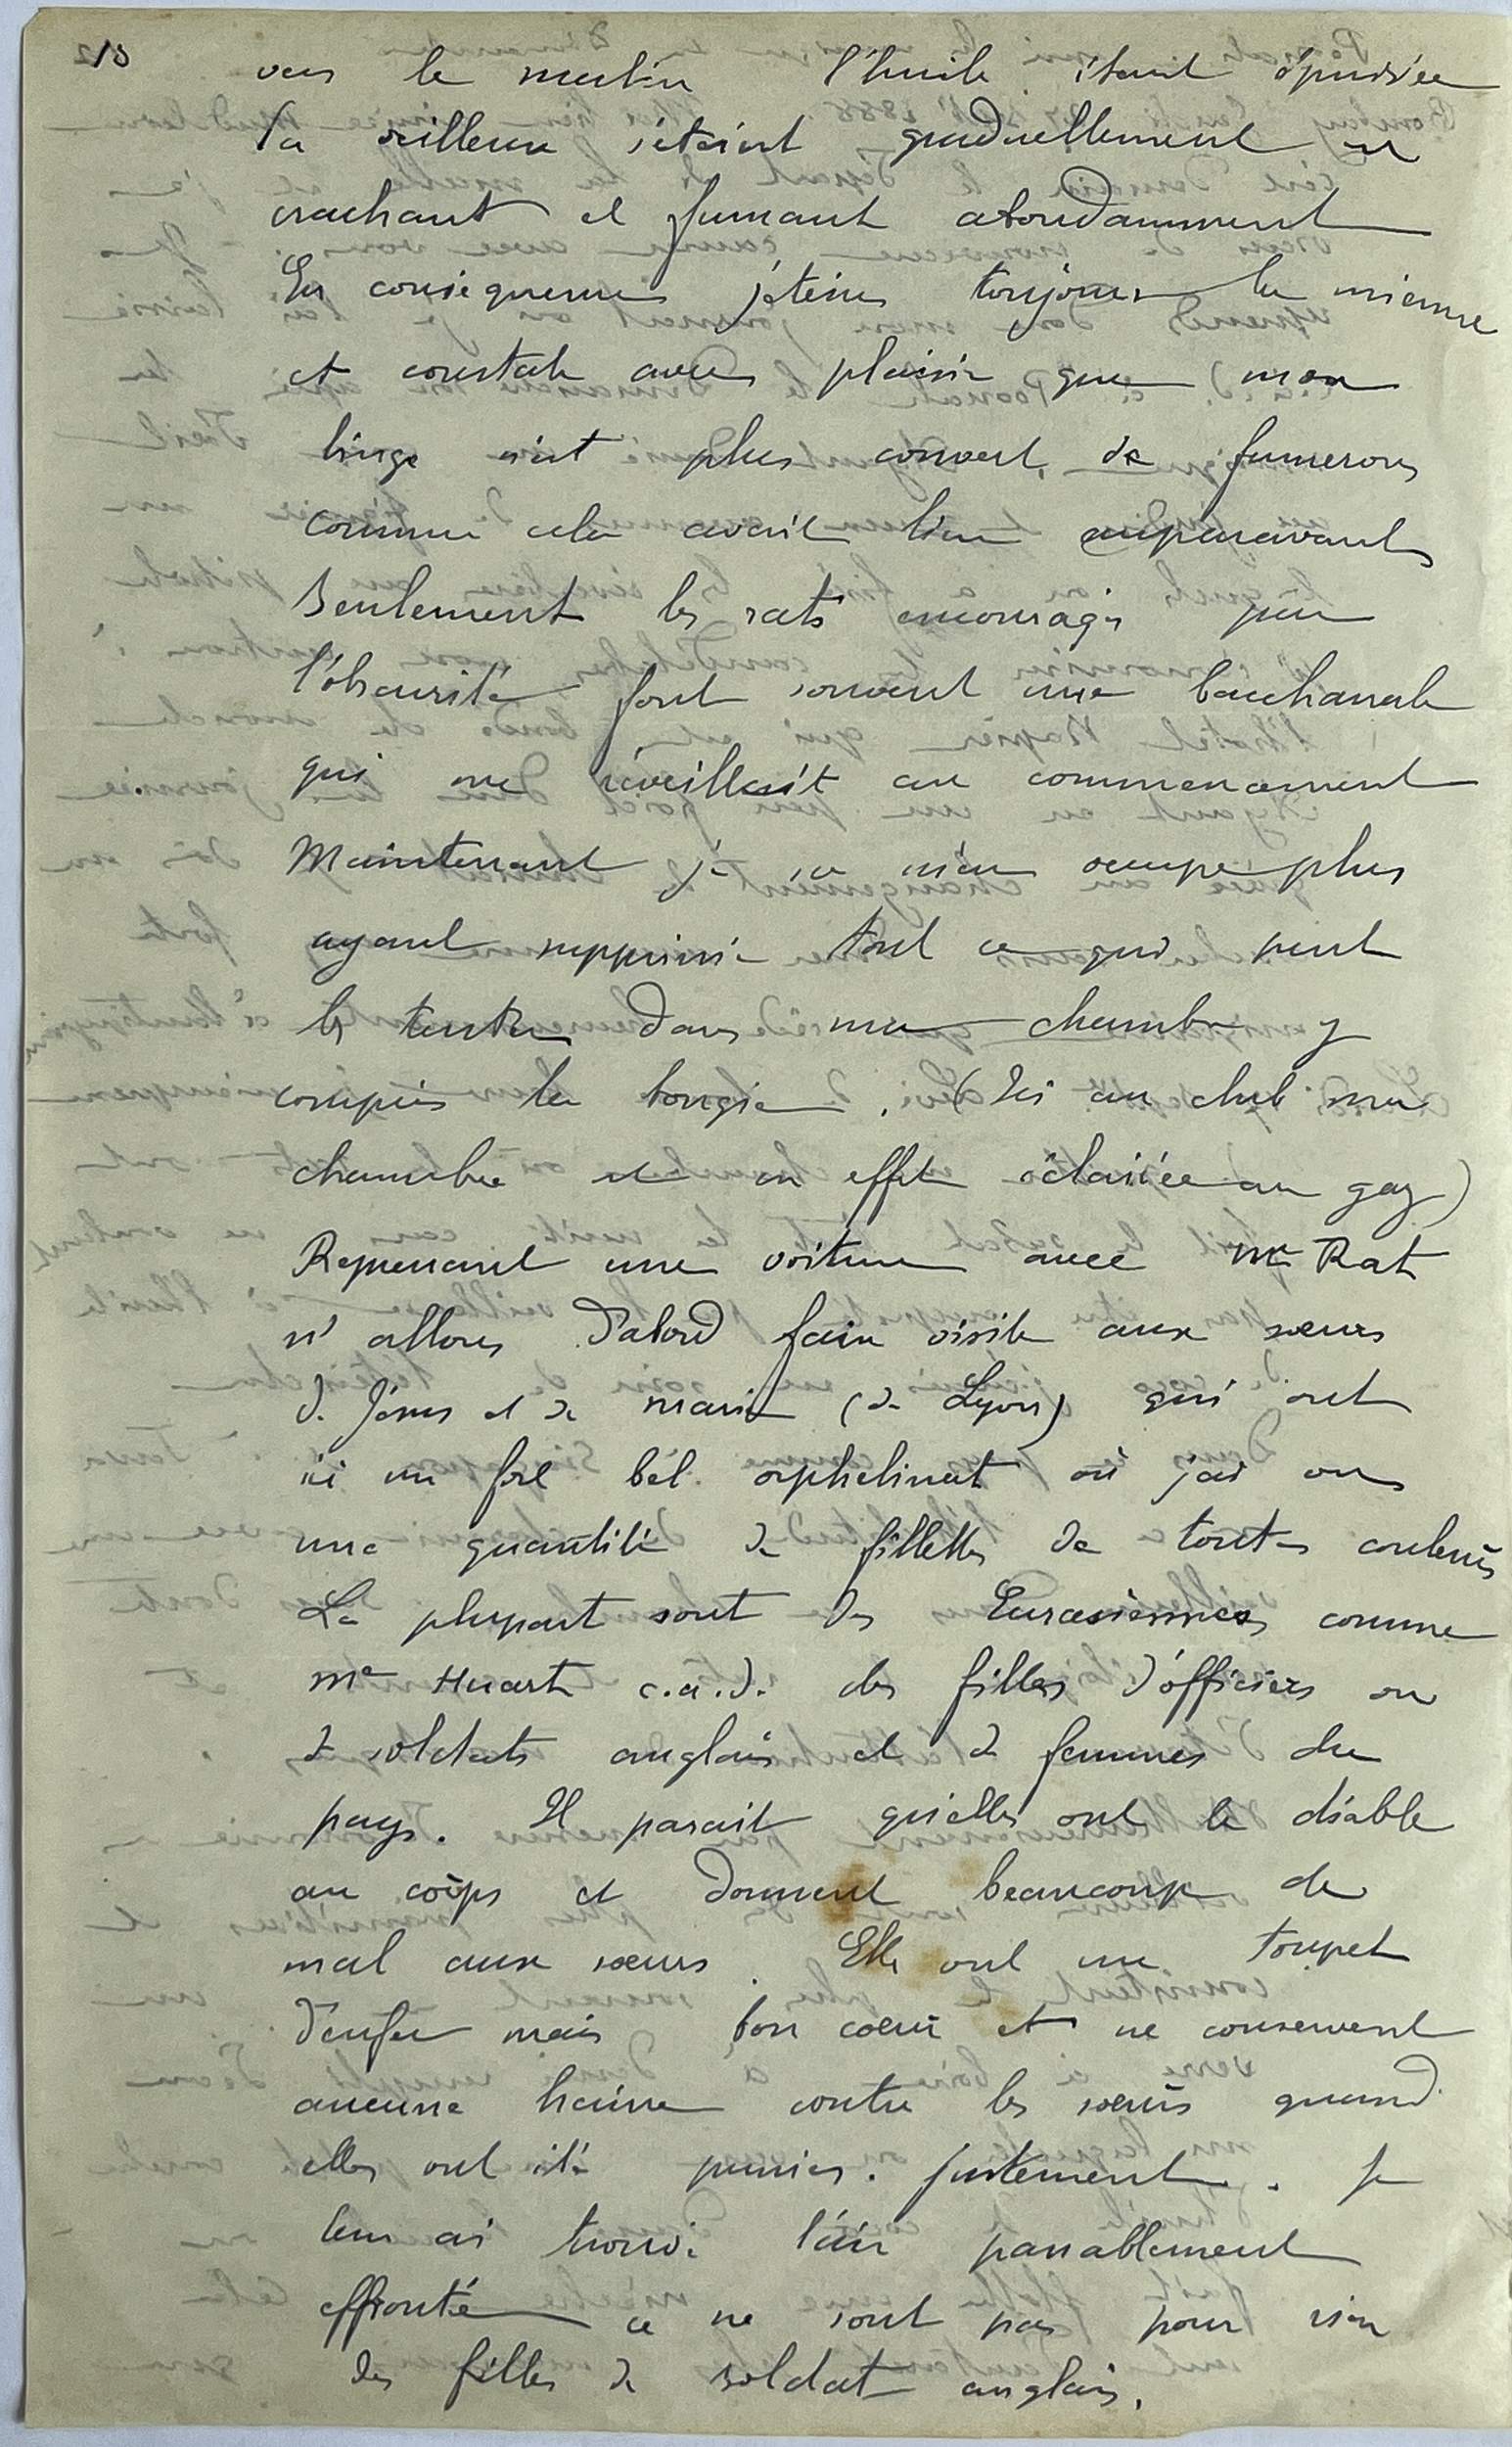 vers le matin l'huile étant épuisée
la veilleuse s'éteint graduellement en
crachant et fumant abondamment
En conséquence j'éteins toujours la mienne
et constate avec plaisir que mon
linge n'est plus couvert de fumerons
comme cela avait lieu auparavant
Seulement les rats encouragés par
l'obscurité font souvent une bacchanale
qui me réveillait au commencement
Maintenant je ne m'en occupe plus
ayant supprimé tout ce qui peut
les tenter dans ma chambre y
compris la bougie. (Ici au club ma
chambre est en effet éclairée au gaz)
Reprenant une voiture avec Mr Rat
n' allons d'abord faire visite aux sœurs
de Jésus et de Marie (de Lyon) qui ont
ici un fort bel orphelinat où j'ai vu
une quantité de fillettes de toutes couleurs
La plupart sont des Eurasiennes comme
Me Huart c.a.d. des filles d'officiers ou
de soldats anglais et de femmes du
pays. Il parait qu'elles ont le diable
au corps et donnent beaucoup de
mal aux sœurs. Elles ont un toupet
d'enfer mais bon cœur et ne conservent
aucune haine contre les sœurs quand
elles ont été punies justement. Je
leur ai trouvé l'air passablement
effronté ce ne sont pas pour rien
des filles de soldat anglais.